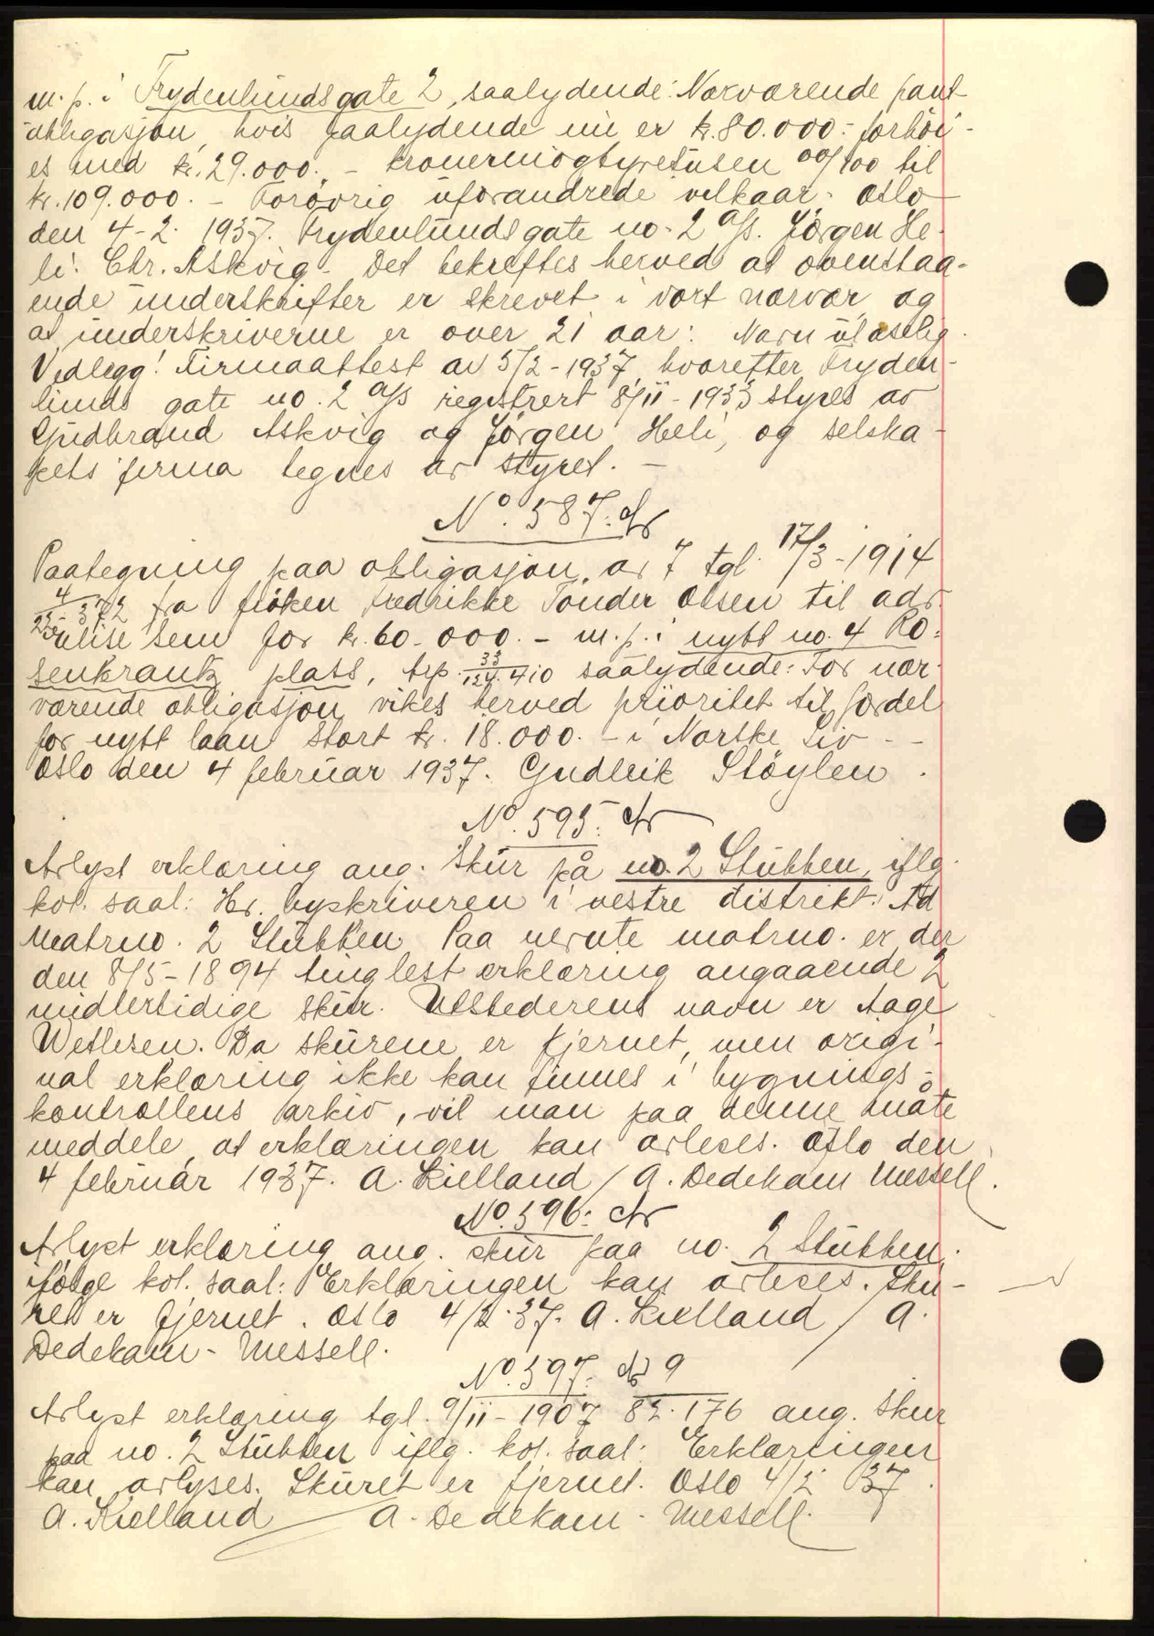 m. p. i Frydenlundsgate 2, saalydende: Nærværende pant
obligasjon, hvis paalydende nu er kr. 80.000.- forhöi-
es med kr. 29.000. - kronerniogtyvetusen 00/100 til
kr. 109.000. - Forøvrig uforandrede vilkaar. Oslo
den 4-2. 1937. Frydenlunds gate no. 2 A/S. Jörgen He-
li. Chr. Askvig. Det bekreftes herved at ovenstaa-
ende underskrifter er skrevet i vort nærvær og
at underskriverne er over 21 aar: Navn ulæselig.
Vedlegg: Firmaattest av 5/2-1937, hvorefter Fryden-
lunds gate no. 2 A/S registrert 8/11-1933 styres av
Gudbrand Askvig og Jörgen Heli, og selska-
pets firma tegnes av styret. -
No. 587.
Paategning paa obligasjon, tgl. 17/3-1914
fra fröken Fredrikke Tonder Olsen til adv.
for kr. 60.000. - m. p. i nytt no. 4 Ro-
senkrantz plass, saalydende: For nær-
værende obligasjon vikes herved prioritet til fordel
for nytt laan stort kr. 18.000. - i Norske Liv --
Oslo den 4 februar 1937. Gudleik Stöylen.
No. 595.
Avlyst erklæring ang. skur på no. 2 Stubben, iflg.
kol. saal: Hr. byskriveren i vestre distrikt. Ad
Matrno. 2 Stubben Paa nevnte matrno. er der
den 8/5-1894 tinglest erklæring angaaende 2
midlertidige skur. Utstederens navn er Aage
Wetlesen. Da skurene er fjernet, men origi-
nal erklæring ikke kan finnes i bygnings-
kontrollens arkiv, vil man paa denne måte
meddele, at erklæringen kan avleses. Oslo den
4 februar 1937. A. Kielland / A. Dedekam Messell.
No. 596.
Avlyst erklæring ang. skur paa no. 2 Stubben.
ifölge kol. saal: Erklæringen kan avleses. Sku-
ret er fjernet. Oslo 4/2-37. A. Kielland / A.
Dedekam-Messell.
No. 597. 9
Avlyst erklæring tgl. 9/11-1907 82-176 ang. skur
paa no. 2 Stubben iflg. kol. saal: Erklæringen
kan avlyses. Skuret er fjernet. Oslo 4/2 37.
A. Kielland / A. Dedekam-Messell.